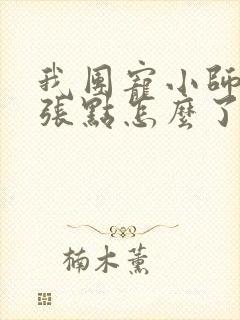 我團寵小師
張點怎麼了
楠木薰